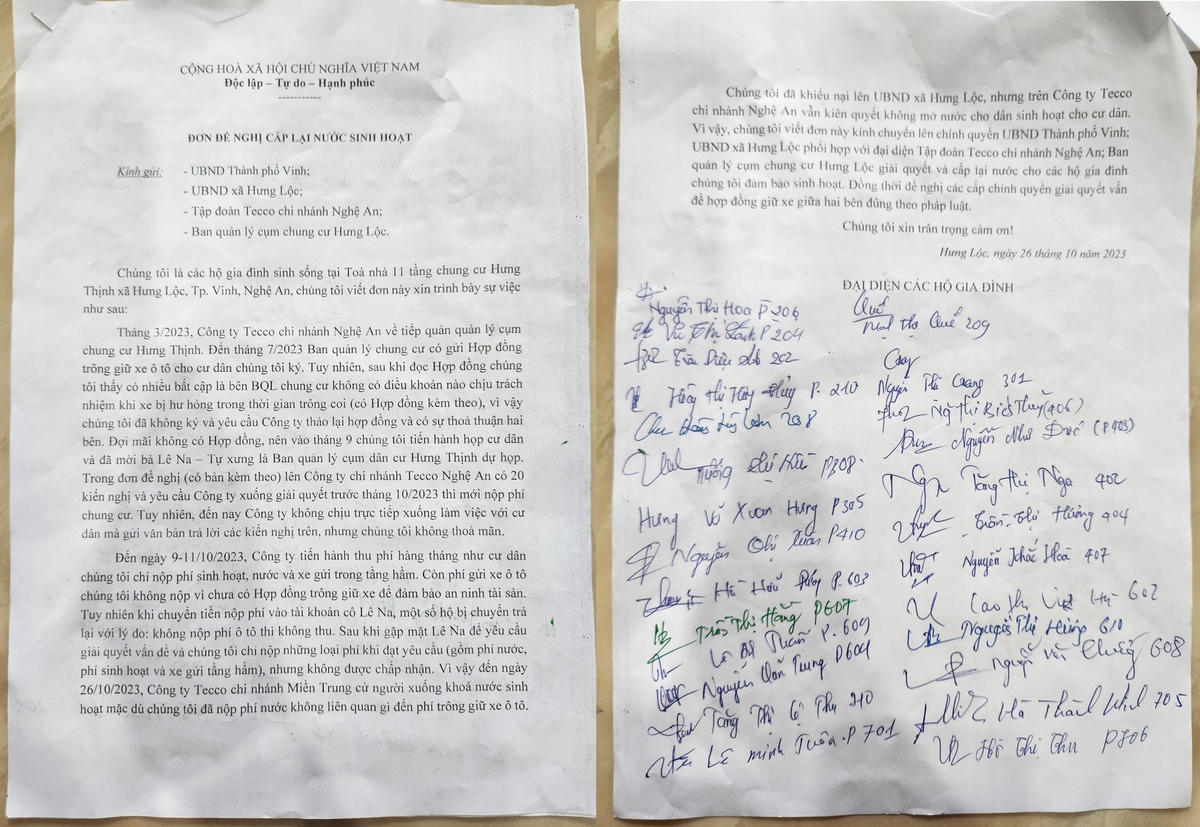 CỘNG HOÀ XÃ HỘI CHỦ NGHĨA VIỆT NAM
Độc lập – Tự do – Hạnh phúc
-----------
ĐƠN ĐỀ NGHỊ CẤP LẠI NƯỚC SINH HOẠT
Kính gửi: - UBND Thành phố Vinh;
- UBND xã Hưng Lộc;
- Tập đoàn Tecco chi nhánh Nghệ An;
- Ban quản lý cụm chung cư Hưng Lộc.
Chúng tôi là các hộ gia đình sinh sống tại Toà nhà 11 tầng chung cư Hưng
Thịnh xã Hưng Lộc, Tp. Vinh, Nghệ An, chúng tôi viết đơn này xin trình bày sự việc
như sau:
Tháng 3/2023, Công ty Tecco chi nhánh Nghệ An về tiếp quản quản lý cụm
chung cư Hưng Thịnh. Đến tháng 7/2023 Ban quản lý chung cư có gửi Hợp đồng
trông giữ xe ô tô cho cư dân chúng tôi ký. Tuy nhiên, sau khi đọc Hợp đồng chúng
tôi thấy có nhiều bất cập là bên BQL chung cư không có điều khoản nào chịu trách
nhiệm khi xe bị hư hỏng trong thời gian trông coi (có Hợp đồng kèm theo), vì vậy
chúng tôi đã không ký và yêu cầu Công ty thảo lại hợp đồng và có sự thoả thuận hai
bên. Đợi mãi không có Hợp đồng, nên vào tháng 9 chúng tôi tiến hành họp cư dân
và đã mời bà Lê Na – Tự xưng là Ban quản lý cụm dân cư Hưng Thịnh dự họp.
Trong đơn đề nghị (có bản kèm theo) lên Công ty chi nhánh Tecco Nghệ An có 20
kiến nghị và yêu cầu Công ty xuống giải quyết trước tháng 10/2023 thì mới nộp phí
chung cư. Tuy nhiên, đến nay Công ty không chịu trực tiếp xuống làm việc với cư
dân mà gửi văn bản trả lời các kiến nghị trên, nhưng chúng tôi không thoả mãn.
Đến ngày 9-11/10/2023, Công ty tiến hành thu phí hàng tháng như cư dân
chúng tôi chỉ nộp phí sinh hoạt, nước và xe gửi trong tầng hầm. Còn phí gửi xe ô tô
chúng tôi không nộp vì chưa có Hợp đồng trông giữ xe để đảm bảo an ninh tài sản.
Tuy nhiên khi chuyển tiền nộp phí vào tài khoản cô Lê Na, một số hộ bị chuyển trả
lại với lý do: không nộp phí ô tô thì không thu. Sau khi gặp mặt Lê Na để yêu cầu
giải quyết vấn đề và chúng tôi chỉ nộp những loại phí khi đạt yêu (gồm phí nước,
phí sinh hoạt và xe gửi tầng hầm), nhưng không được chấp nhận. Vì vậy đến ngày
26/10/2023, Công ty Tecco chi nhánh Miền Trung cử người xuống khoá nước sinh
hoạt mặc dù chúng tôi đã nộp phí nước không liên quan gì đến phí trông giữ xe ô tô.
Chúng tôi đã khiếu nại lên UBND xã Hưng Lộc, nhưng trên Công ty Tecco
chi nhánh Nghệ An vẫn kiên quyết không mở nước cho dân sinh hoạt cho cư dân.
Vì vậy, chúng tôi viết đơn này kính chuyển lên chính quyền UBND Thành phố Vinh;
UBND xã Hưng Lộc phối hợp với đại diện Tập đoàn Tecco chi nhánh Nghệ An; Ban
quản lý cụm chung cư Hưng Lộc giải quyết và cấp lại nước cho các hộ gia đình
chúng tôi đảm bảo sinh hoạt. Đồng thời đề nghị các cấp chính quyền giải quyết vấn
đề hợp đồng giữ xe giữa hai bên đúng theo pháp luật.
Chúng tôi xin trân trọng cảm ơn!
Hưng Lộc, ngày 26 tháng 10 năm 2023
ĐẠI DIỆN CÁC HỘ GIA ĐÌNH
Nguyễn Thị Hoa P 206
P 204
Trần Diệu 202
P. 210
208
P308
Hưng Võ Xuan Hưng P305
Nguyễn Thị Xuân P410
P. 603
Trần Thị Hằng P607
P. 609
Nguyễn Văn Trung P604
Tăng Thị 210
Lê minh Tuân P 701
Quế
Thị Quế 209
Nguyễn Thị 301
Ngô Thị Bích Thuỷ (406)
Nguyễn Như Đức (P.403)
Nga Tăng Thị Nga 402
Trần Thị Hương 404
Nguyễn Khắc Hoà 407
Cao Thị 602
Nguyễn Thị Hùng 610
Nguyễn Văn 608
Hà Thành 705
Hồ Thị Thu P706